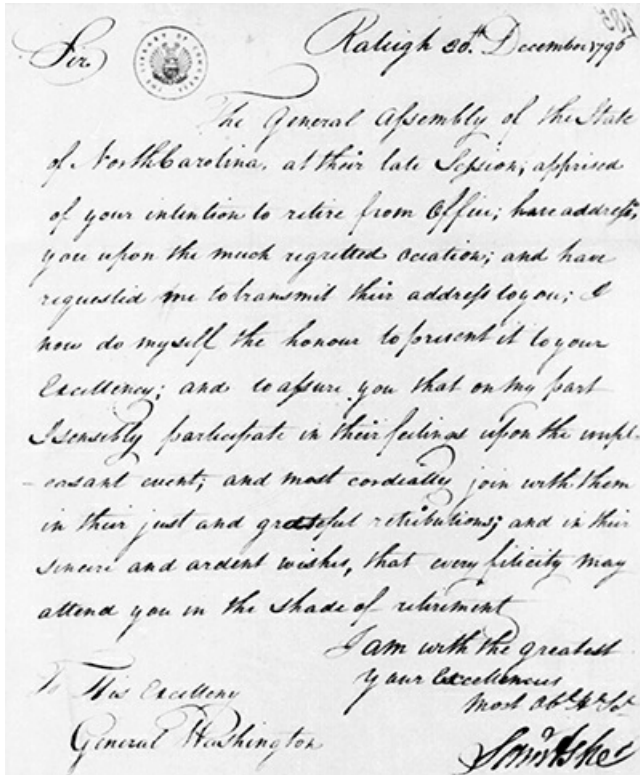 Raleigh 30th December 1796
Sir
THE LIBRARY OF CONGRESS
The General Assembly of the State
of North Carolina. at their late Session; apprised
of your intention to retire from Office; have address'd
you upon the much regretted occation; and have
requested me to transmit their address to you; I
now do myself the honour to present it to your
Excellency; and to assure you that on my part
I sensibly participate in their feelings upon the unpl-
-easant event; and most cordially join with them
in their just and grateful retributions; and in their
sincere and ardent wishes, that every felicity may
attend you in the shade of retirement
I am with the greatest
Your Excellencies
Most Obt
To His Excellency
General Washington
Sam Ashe